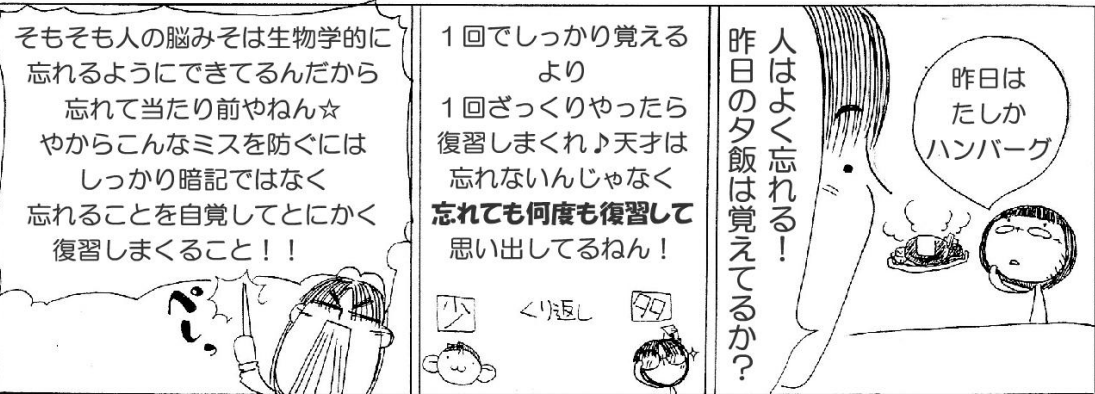 人はよく忘れる！
昨日の夕飯は覚えてるか？
昨日は
たしか
ハンバーグ
１回でしっかり覚える
より
１回ざっくりやったら
復習しまくれ♪天才は
忘れないんじゃなく
忘れても何度も復習して
思い出してるねん！
少
くり返し
多
そもそも人の脳みそは生物学的に
忘れるようにできてるんだから
忘れて当たり前やねん☆
やからこんなミスを防ぐには
しっかり暗記ではなく
忘れることを自覚してとにかく
復習しまくること！！